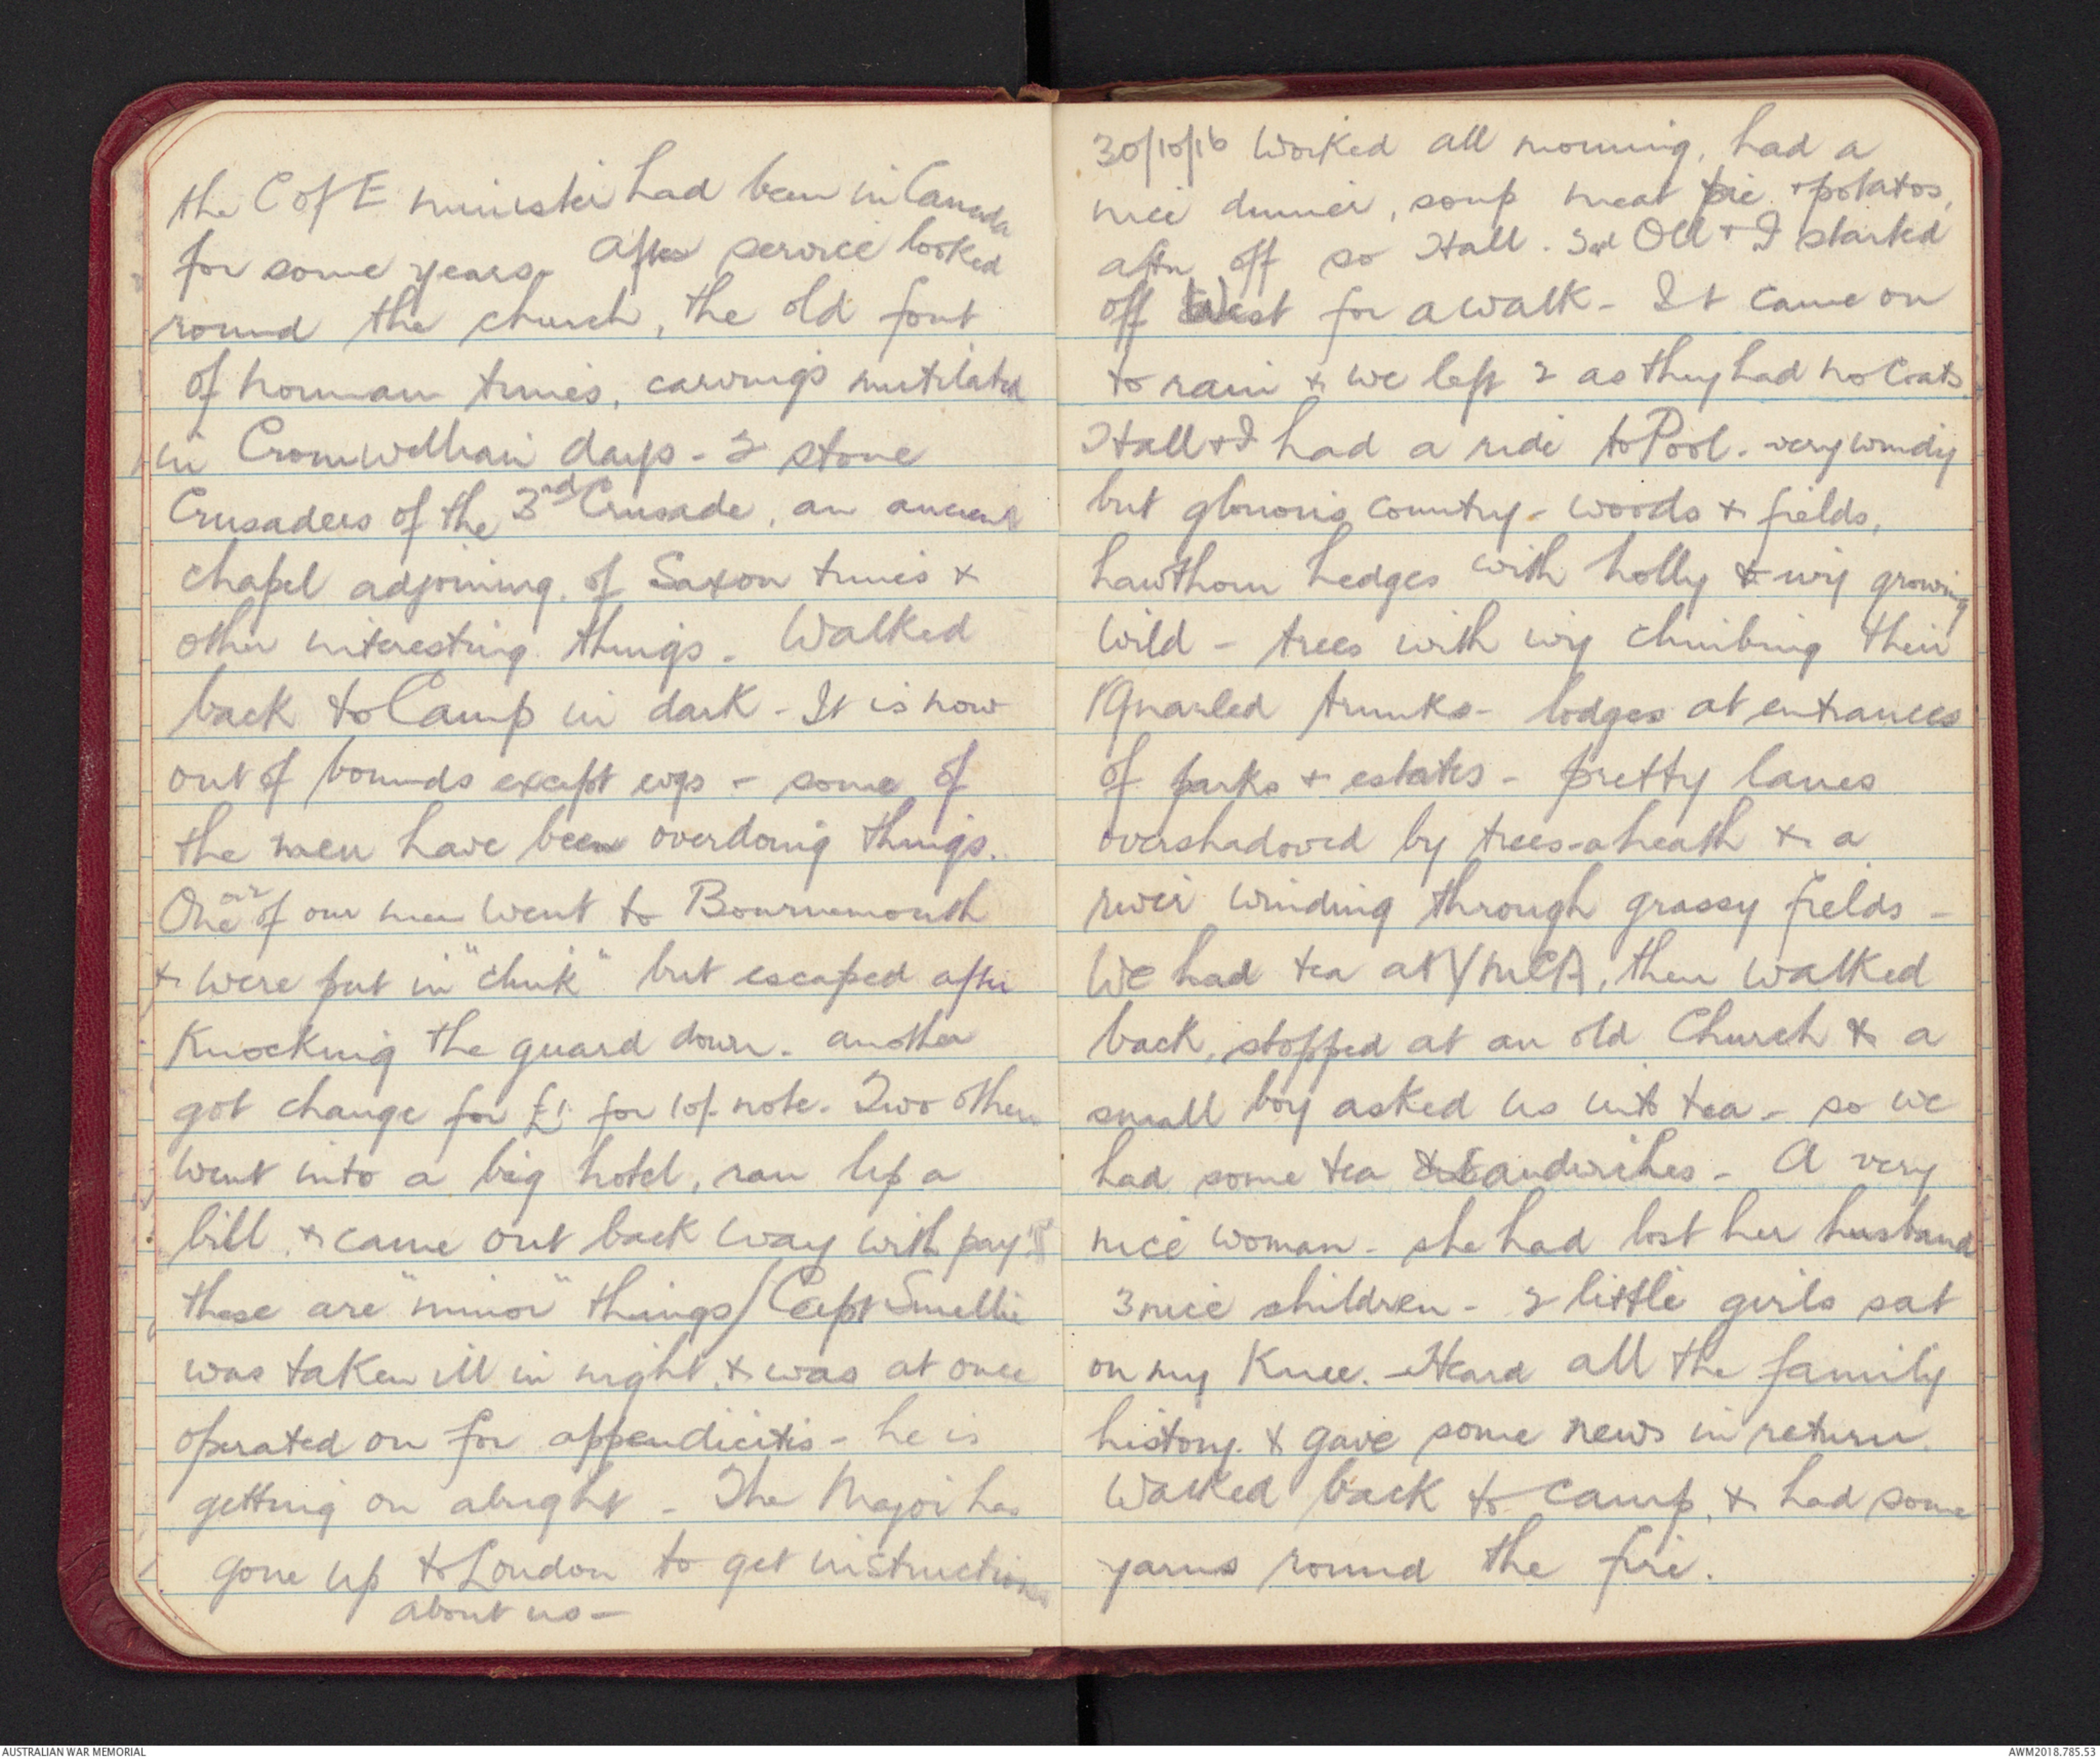 the C of E minister had been in Canada
for some years. After service looked
round the church, the old font
of norman times, carvings mutilated
in Cromwellian days - 2 stone
Crusaders of the 3rd Crusade, an ancient
chapel adjoining, of Saxon times +
other interesting things. Walked
back to Camp in dark - It is now
out of bounds except evgs - some of
the men have been overdoing things.
One or of our men went to Bournemouth
+ were put in "clink" but escaped after
Knocking the guard down - another
got change for £1 for 10/- note. Two others
went into a big hotel, ran up a
bill, + came out back way with pay
these are "minor" things/Capt Smellie
was taken ill in night, + was at once
operated on for appendicitis - he is
getting on alright - The Major has
gone up to London to get instructions
about us -
30/10/16 Worked all morning, had a
nice dinner, soup meat pie + potatos,
aftn off so Hall. Oll + I started
off West for a walk - It came on
to rain + we left 2 as they had no Coats.
Hall + I had a ride to Pool. very windy
but glorious country - woods + fields,
hawthorn hedges with holly + ivy growing
wild - trees with ivy climbing their
gnarled trunks - lodges at entrances
of parks + estates - pretty lanes
overshadowed by trees - a heath + a
river winding through grassy fields -
We had tea at YMCA, then walked
back, stopped at an old Church + a
small boy asked us into tea - so we
had some tea + Sandwiches - A very
nice woman - she had lost her husband
3 nice children - 2 little girls sat
on my Knee. - Heard all the family
history + gave some news in return.
Walked back to camp, + had some
yarns round the fire.
AUSTRALIAN WAR MEMORIAL
AWM2018.785.53